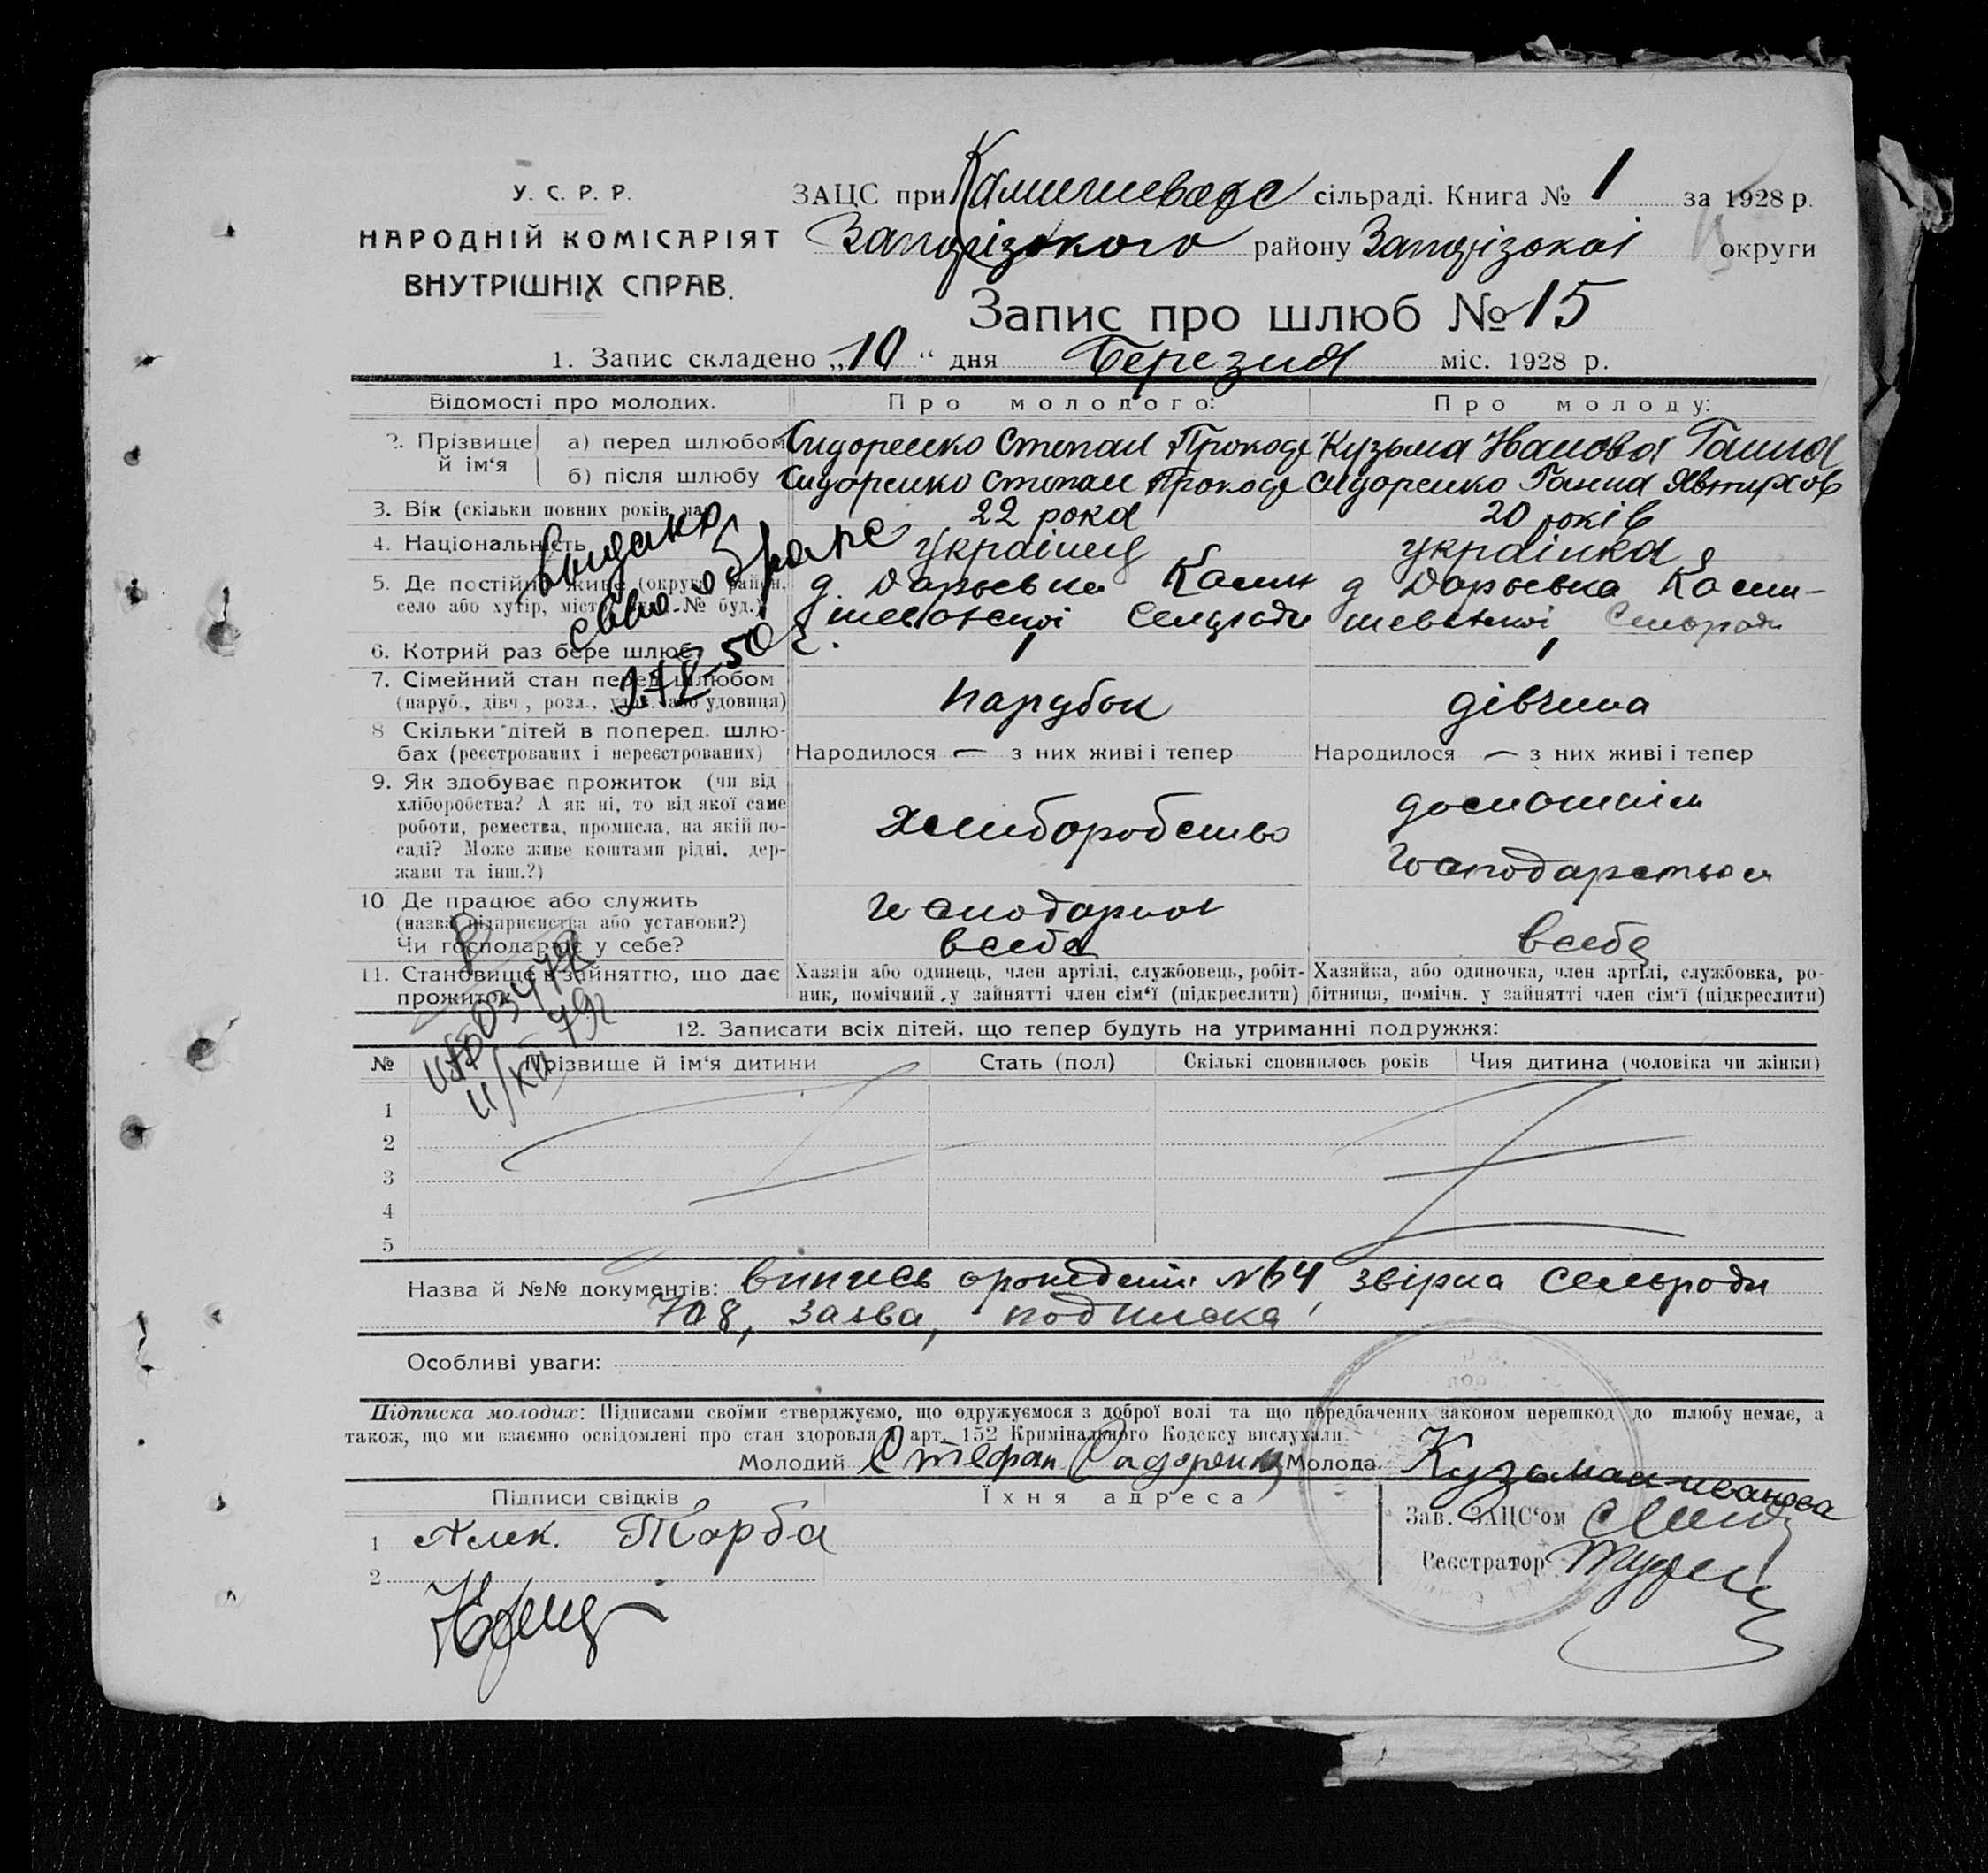 У. С. Р. Р.
НАРОДНІЙ КОМІСАРІЯТ
ВНУТРІШНІХ СПРАВ.
ЗАЦС при сільраді. Книга № 1 за 1928 р.
Запорізького району Запорізскої округи
Запис про шлюб № 15
1. Запис складено „10“ дня Березня міс. 1928 р.
Відомості про молодих. Про молодого: Про молоду:
2. Прізвище й ім‘я
а) перед шлюбом Сидоренко Степан Прокоф Кузьма Ганна
б) після шлюбу Сидоренко Степан Прокоф Сидоренко Ганна
3. Вік (скільки повних років має) 22 рока 20 років
4. Національність українец українка
5. Де постійно живе (округа, район, село або хутір, місто, № буд.)
д. Дарьевка Камишеватскоі Сельради
д Дарьевка Камишеватскоі Сельради
6. Котрий раз бере шлюб 1 1
7. Сімейний стан перед шлюбом парубок дівчина
(паруб., дівч., розл., удов. або удовиця)
8 Скільки дітей в поперед. шлюбах (реєстрованих і нереєстрованих)
Народилося — з них живі і тепер Народилося — з них живі і тепер
9. Як здобуває прожиток (чи від
хліборобства? А як ні, то від якої саме
роботи, ремества, промисла, на якій по-
саді? Може живе коштами рідні, дер-
жави та інш.?)
Хлиборобство
домошнім
господарством
10. Де працює або служить
(назва підприємства або установи?)
Чи господарює у себе?
всебе
всебе
11. Становище в зайняттю, що дає
прожиток
Хазяін або одинець, член артілі, службовець, робіт-
ник, помічний у зайнятті член сім‘ї (підкреслити)
Хазяйка, або одиночка, член артілі, службовка, ро-
бітниця, помічн. у зайнятті член сім‘ї (підкреслити)
видано
свидо о браке
12. Записати всіх дітей, що тепер будуть на утриманні подружжя:
№ Прізвище й ім‘я дитини Стать (пол) Скількі сповнилось років Чия дитина (чоловіка чи жінки)
1
2
3
4
5
Назва й №№ документів: випись №64, звірка Сельради
708, заява, подписка
Особливі уваги:
Підписка молодих: Підписами своїми стверджуємо, що одружуємося з доброї волі та що передбачених законом перешкод до шлюбу немає, а
також, що ми взаємно освідомлені про стан здоровля і арт. 152 Кримінального Кодексу вислухали.
Молодий Стефан Молода
Підписи свідків Їхня адреса
1 Алек. Торба
2
Зав. ЗАЦС‘ом
Реєстратор